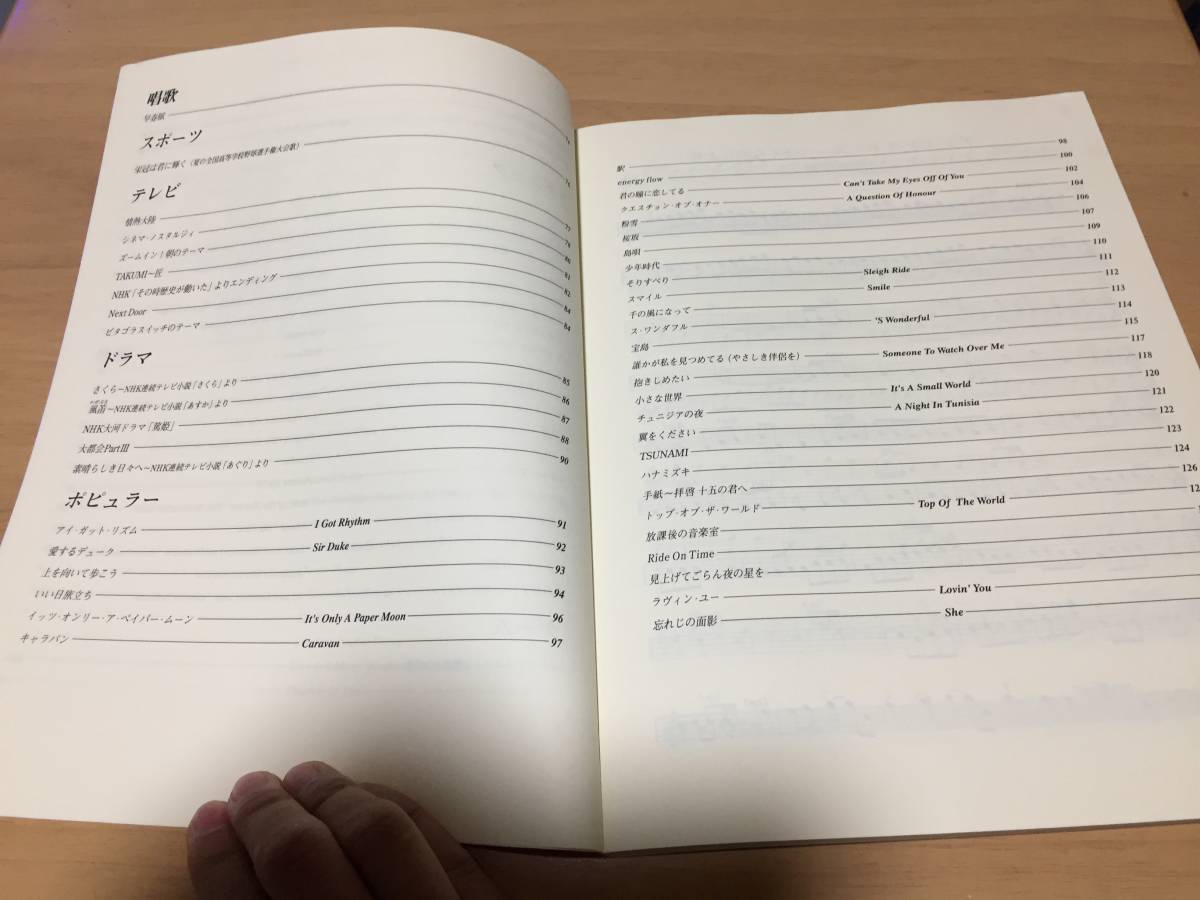 唱歌
早春賦 74
スポーツ
栄冠は君に輝く（夏の全国高等学校野球選手権大会歌） 76
テレビ
情熱大陸 77
シネマ・ノスタルジィ 78
ズームイン！朝のテーマ 80
TAKUMI〜匠 81
NHK「その時歴史が動いた」よりエンディング 82
Next Door 84
ピタゴラスイッチのテーマ 84
ドラマ
さくら〜NHK連続テレビ小説「さくら」より 85
風笛〜NHK連続テレビ小説「あすか」より 86
NHK大河ドラマ「篤姫」 87
大都会PartⅢ 88
素晴らしき日々へ〜NHK連続テレビ小説「あぐり」より 90
ポピュラー
アイ・ガット・リズム I Got Rhythm 91
愛するデューク Sir Duke 92
上を向いて歩こう 93
いい日旅立ち 94
イッツ・オンリー・ア・ペイパー・ムーン It's Only A Paper Moon 96
キャラバン Caravan 97
駅 98
energy flow 100
君の瞳に恋してる Can't Take My Eyes Off Of You 102
クエスチョン・オブ・オナー A Question Of Honour 104
粉雪 106
桜坂 107
島唄 109
少年時代 110
そりすべり Sleigh Ride 111
スマイル Smile 112
千の風になって 113
ス・ワンダフル 'S Wonderful 114
宝島 115
誰かが私を見つめてる（やさしき伴侶を） Someone To Watch Over Me 117
抱きしめたい 118
小さな世界 It's A Small World 120
チュニジアの夜 A Night In Tunisia 121
翼をください 122
TSUNAMI 123
ハナミズキ 124
手紙〜拝啓 十五の君へ 126
トップ・オブ・ザ・ワールド Top Of The World
放課後の音楽室
Ride On Time
見上げてごらん夜の星を
ラヴィン・ユー Lovin' You
忘れじの面影 She